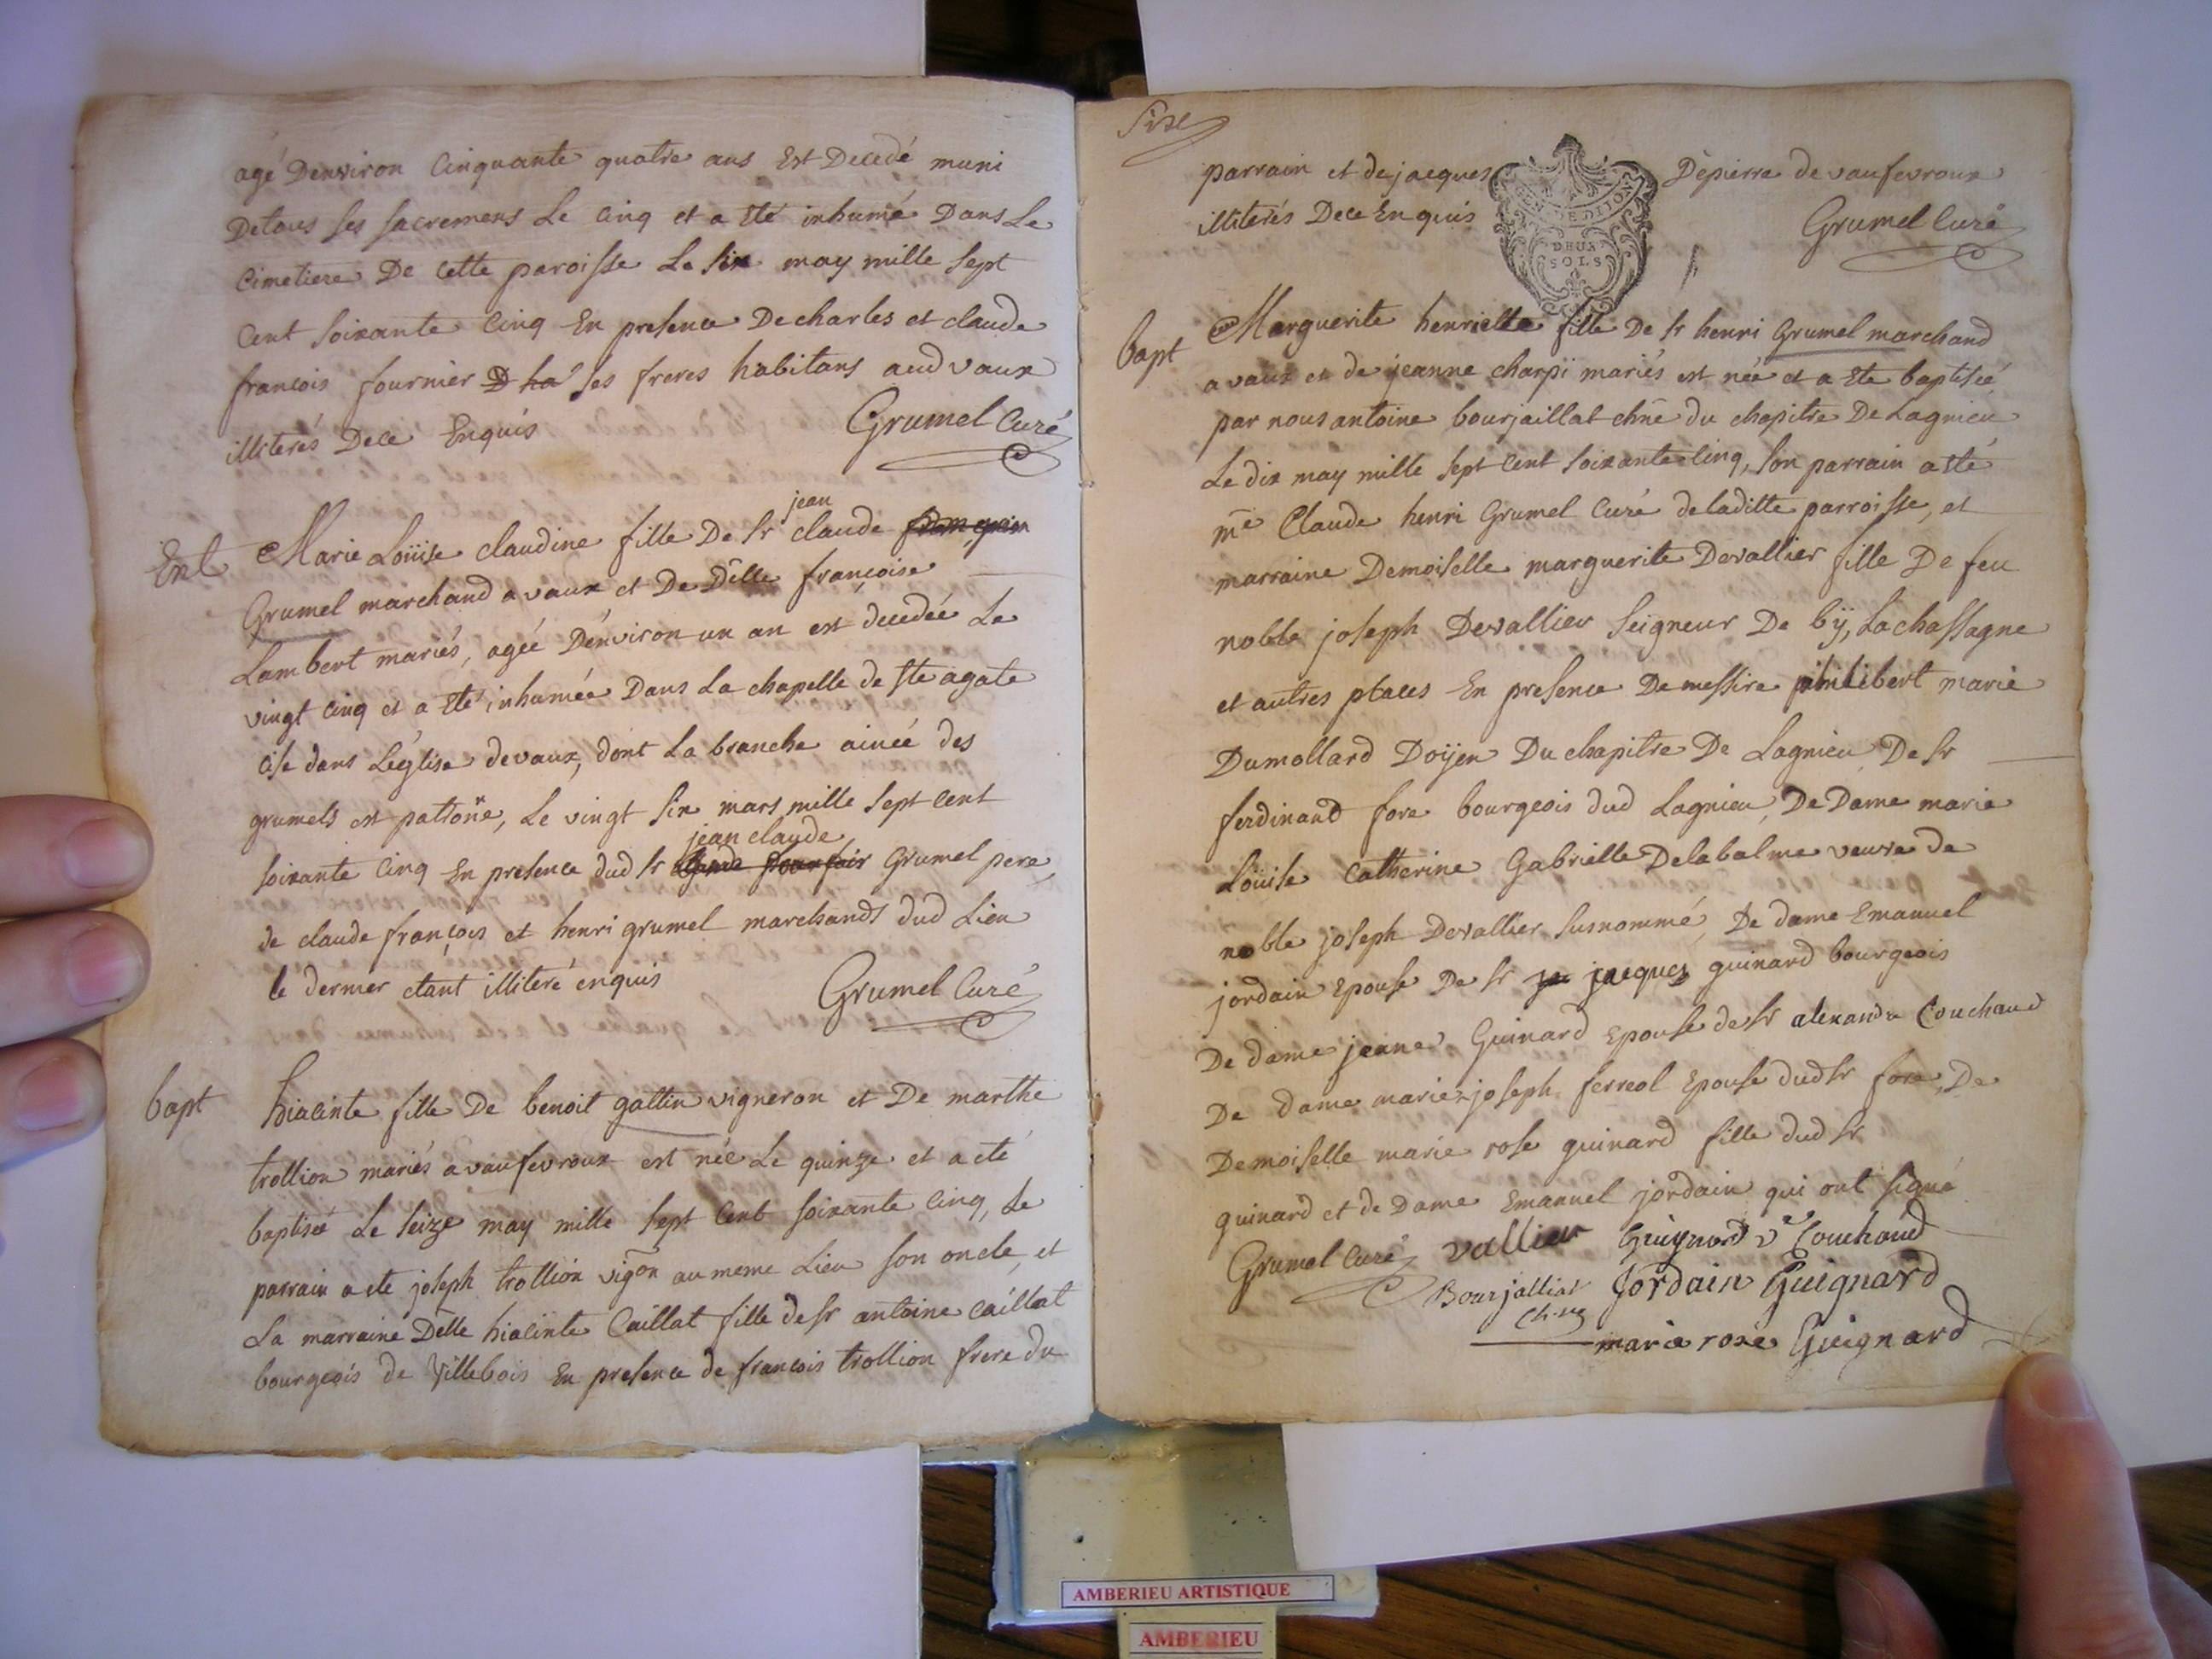 agé Denviron Cinquante quatre ans Est Decedé muni
Detous ses sacremens Le Cinq et a Eté inhumé Dans Le
Cimetiere De Cette paroisse Le six may mille sept
Cent soixante Cinq En presence De charles et claude
francois fournier D ha ses freres habitans aud vaux
illiterés Dece Enquis
Grumel Curé
Ent
jean
Marie Loüise claudine fille De sr claude francois
Grumel marchand a vaux et De Delle françoise
Lambert mariés, agée Denviron un an est decedée Le
vingt cinq et a Eté inhumée Dans La chapelle de ste agate
cise dans L'eglise devaux, dont La branche ainée des
grumels est patrone, Le vingt six mars mille sept cent
jean claude
soixante Cinq En presence dud sr Grumel pere
de claude françois et henri grumel marchands dud Lieu
le dernier etant illiteré enquis
Grumel Curé
bapt
hiacinte fille De benoit gottin vigneron et De marthe
trollion mariés a vaufevroux est née Le quinze et a eté
baptisée Le seize may mille sept Cent soixante Cinq, Le
parrain a ete joseph trollion vigon au meme Lieu son oncle, et
La marraine Delle hiacinte Caillat fille de sr antoine caillat
bourgeois de Villebois En presence de francois trollion frere du
Size
parrain et de jacques Depierre de vaufevroux
illiterés Dece Enquis
Grumel Curé
GEN DE DIJON
DEUX
SOLS
bapt
Marguerite henriette fille De sr henri Grumel marchand
a vaux et de jeanne charpi mariés est née et a Ete baptisée
par nous antoine bourjaillat chne du chapitre De Lagnieu
Le dix may mille sept Cent soixante Cinq, son parrain a eté
me Claude henri Grumel Curé de laditte parroisse, et
marraine Demoiselle marguerite Devallier fille De feu
noble joseph Devallier seigneur De bÿ, Lachassagne
et autres places En presence De messire philibert marie
Dumollard Doÿen Du chapitre De Lagnieu De sr
ferdinand fore bourgeois dud Lagnieu, De Dame marie
Loüise Catherine Gabrielle Delabalme veuve de
noble joseph Devallier susnommé, De dame Emanuel
jordain Epouse De sr ja jacques guinard bourgeois
De dame jeane Guinard Epouse de sr alexandre Couchaud
De dame marie joseph ferreol Epouse dud sr fore, De
Demoiselle marie rose guinard fille dud sr
guinard et de Dame Emanuel jordain qui ont signé
Grumel Curé vallier Guignard Couchaud
Bourjalliat Jordain Guignard
Ch.ne
marie rose Guignard
AMBERIEU ARTISTIQUE
AMBERIEU